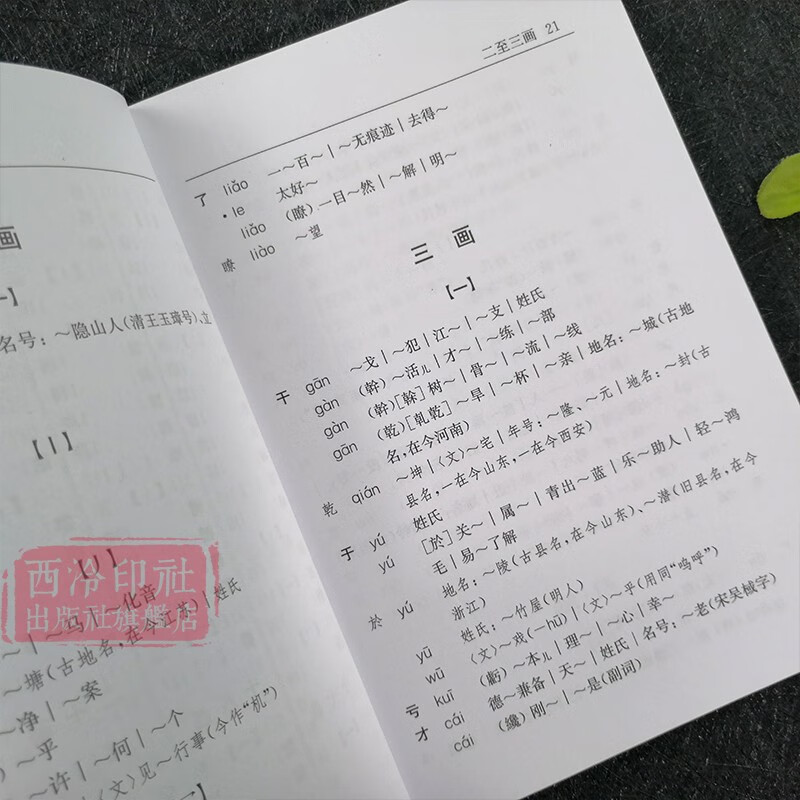 画
一】
名号：～隐山人(清王玉璋号)、立
【丨】
【丿】
～|～马|～化音
～塘(古地名,在今江苏)|姓氏
～净|～案
)～乎
～许|～何|～个
〈文〉见～行事(今作“机”)
西泠印社
出版社旗舰店
二至三画 21
了 liǎo 一～百～|～无痕迹|去得～
·le 太好～
liǎo (瞭)一目～然|～解|明～
瞭 liào ～望
三画
【一】
干 gān ～戈|～犯|江～|～支|姓氏
gàn (幹)～活儿|才～|～练|～部
gàn (幹)[榦]树～|骨～|～流|～线
gān (乾)[乹乾]～旱|～杯|～亲|地名：～城(古地
名,在今河南)
乾 qián ～坤|〈文〉～宅|年号：～隆、～元|地名：～封(古
县名,一在今山东,一在今西安)
于 yú 姓氏
yú [於]关～|属～|青出～蓝|乐～助人|轻～鸿
毛|易～了解
於 yú 地名：～陵(古县名,在今山东)、～潜(旧县名,在今
浙江)
yū 姓氏：～竹屋(明人)
wū 〈文〉～戏(一hū)|〈文〉～乎(用同“呜呼”)
亏 kuī (虧)～本儿|理～|～心|幸～
才 cái 德～兼备|天～|姓氏|名号：～老(宋吴棫字)
cái (纔)刚～|～是(副词)